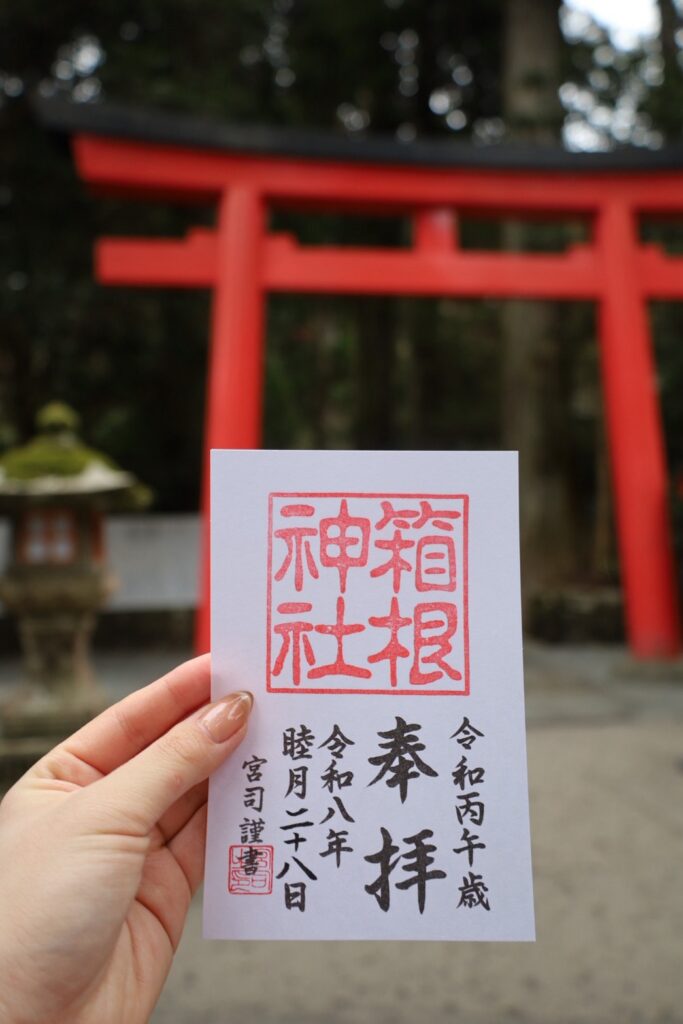 箱根
神社
令和丙午歳
奉拝
令和八年
睦月二十八日
宮司謹書